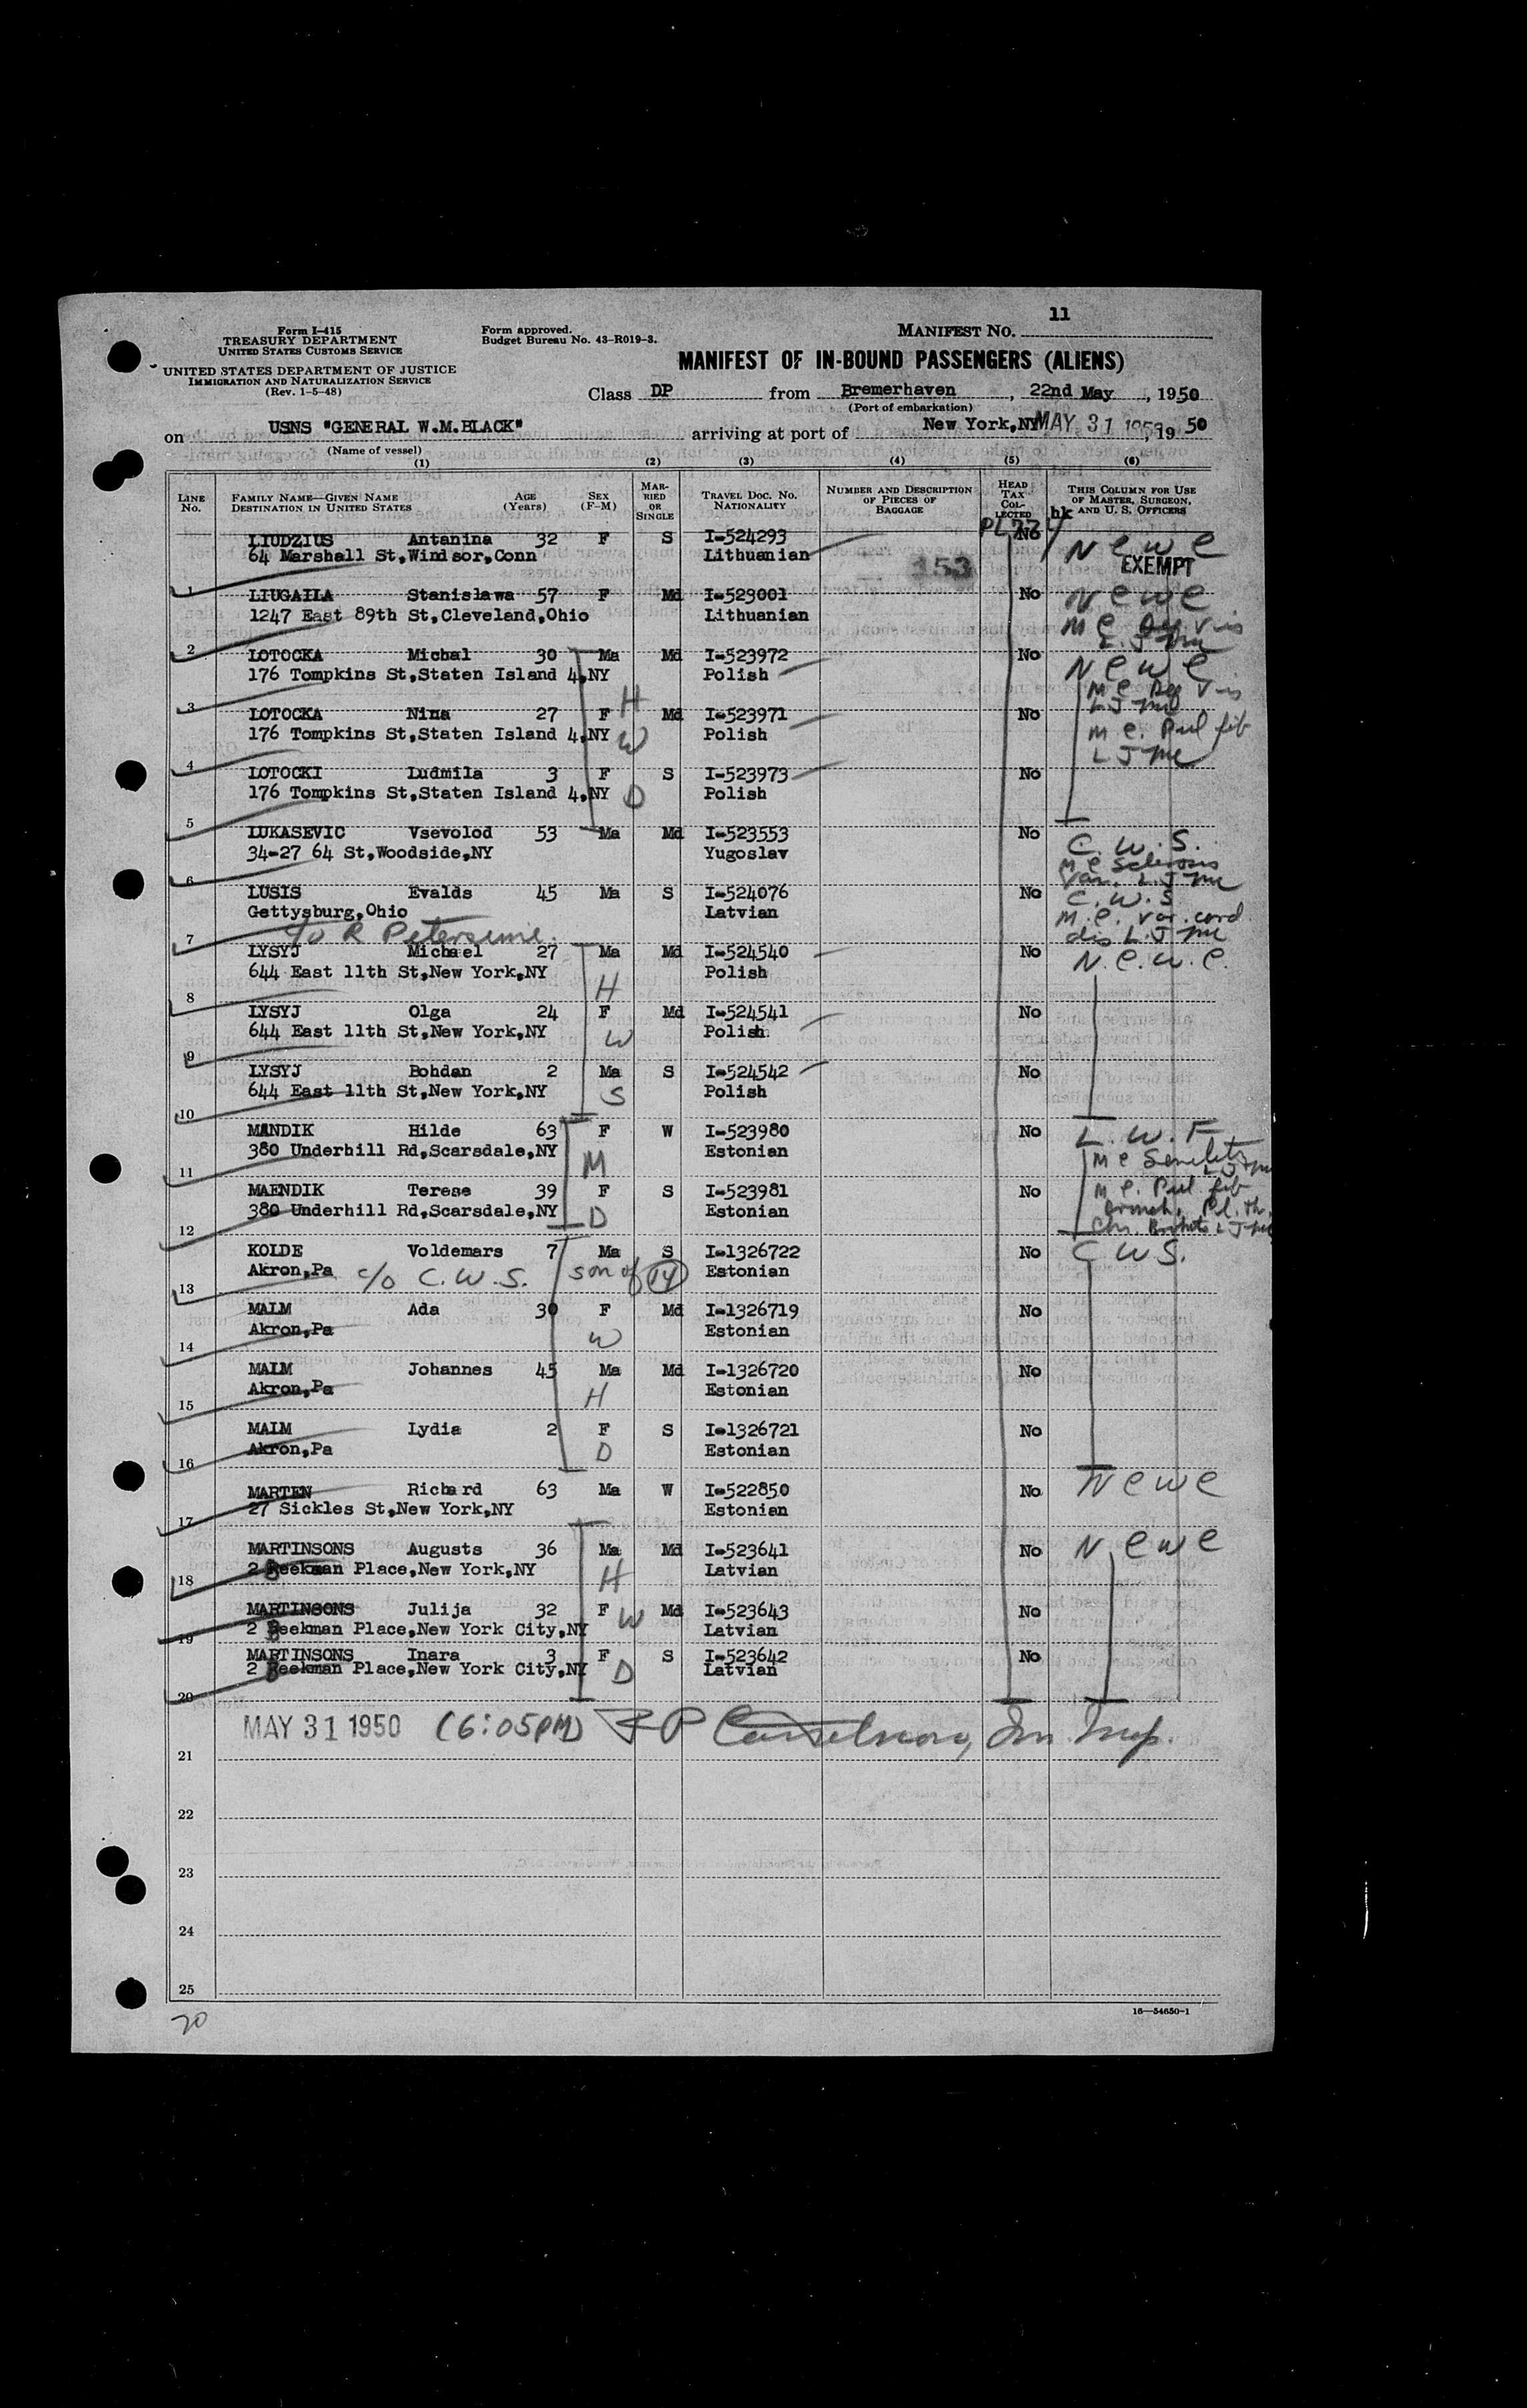 11
Form I-415
TREASURY DEPARTMENT
UNITED STATES CUSTOMS SERVICE
UNITED STATES DEPARTMENT OF JUSTICE
IMMIGRATION AND NATURALIZATION SERVICE
(Rev. 1-5-48)
Form approved.
Budget Bureau No. 43-R019-3.
MANIFEST NO.
MANIFEST OF IN-BOUND PASSENGERS (ALIENS)
Class DP from Bremerhaven, 22nd May, 1950
(Port of embarkation)
on USNS "GENERAL W.M.BLACK" arriving at port of New York,NY MAY 31 1950, 19 50
(Name of vessel)
(1) (2) (3) (4) (5) (6)
LINE No. FAMILY NAME—GIVEN NAME DESTINATION IN UNITED STATES AGE (Years) SEX (F-M) MARRIED OR SINGLE TRAVEL DOC. NO. NATIONALITY NUMBER AND DESCRIPTION OF PIECES OF BAGGAGE HEAD TAX COLLECTED THIS COLUMN FOR USE OF MASTER, SURGEON, AND U. S. OFFICERS
hk
PL 774
LIUDZIUS Antanina 32 F S I-524293 No N e w e
64 Marshall St,Windsor,Conn Lithuanian 153 EXEMPT
1
LIUGAILA Stanislawa 57 F Md I-523001 No N e w e
1247 East 89th St,Cleveland,Ohio Lithuanian
2
LOTOCKA Michal 30 Ma Md I-523972 No N e w e
176 Tompkins St,Staten Island 4,NY Polish
3 H
LOTOCKA Nina 27 F Md I-523971 No
176 Tompkins St,Staten Island 4,NY W Polish m e. Pul fib
4
LOTOCKI Ludmila 3 F S I-523973 No
176 Tompkins St,Staten Island 4,NY D Polish
5
LUKASEVIC Vsevolod 53 Ma Md I-523553 No C. W. S.
34-27 64 St,Woodside,NY Yugoslav m e Sclerosis
6
LUSIS Evalds 45 Ma S I-524076 No C. W. S
Gettysburg,Ohio Latvian m. e. var. card
7 c/o R Petersime dis L J
LYSYJ Michael 27 Ma Md I-524540 No N. e. w. e.
644 East 11th St,New York,NY H Polish
8
LYSYJ Olga 24 F Md I-524541 No
644 East 11th St,New York,NY W Polish
9
LYSYJ Bohdan 2 Ma S I-524542 No
644 East 11th St,New York,NY S Polish
10
MANDIK Hilde 63 F W I-523980 No L. W. F
380 Underhill Rd,Scarsdale,NY M Estonian m e Senility
11
MAENDIK Terese 39 F S I-523981 No m e. Pul fib
380 Underhill Rd,Scarsdale,NY D Estonian
12
KOIDE Voldemars 7 Ma S I-1326722 No C W S.
Akron,Pa c/o C. W. S. son of 14 Estonian
13
MALM Ada 30 F Md I-1326719 No
Akron,Pa W Estonian
14
MALM Johannes 45 Ma Md I-1326720 No
Akron,Pa H Estonian
15
MALM Lydia 2 F S I-1326721 No
Akron,Pa D Estonian
16
MARTEN Richard 63 Ma W I-522850 No N e w e
27 Sickles St,New York,NY Estonian
17
MARTINSONS Augusts 36 Ma Md I-523641 No N e w e
2 Beekman Place,New York,NY H Latvian
18
MARTINSONS Julija 32 F W Md I-523643 No
2 Beekman Place,New York City,NY Latvian
19
MARTINSONS Inara 3 F S I-523642 No
2 Beekman Place,New York City,NY D Latvian
20
MAY 31 1950 (6:05PM) Im. Insp.
21
22
23
24
25
20
16—54650-1